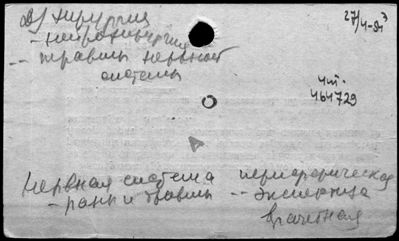 Д) хирургия
- нейрохирургия
-- травмы нервной
системы
27/4-9х³
чт.
464729
Нервная система периферическая
- раны и травмы -- экспертиза
врачебная